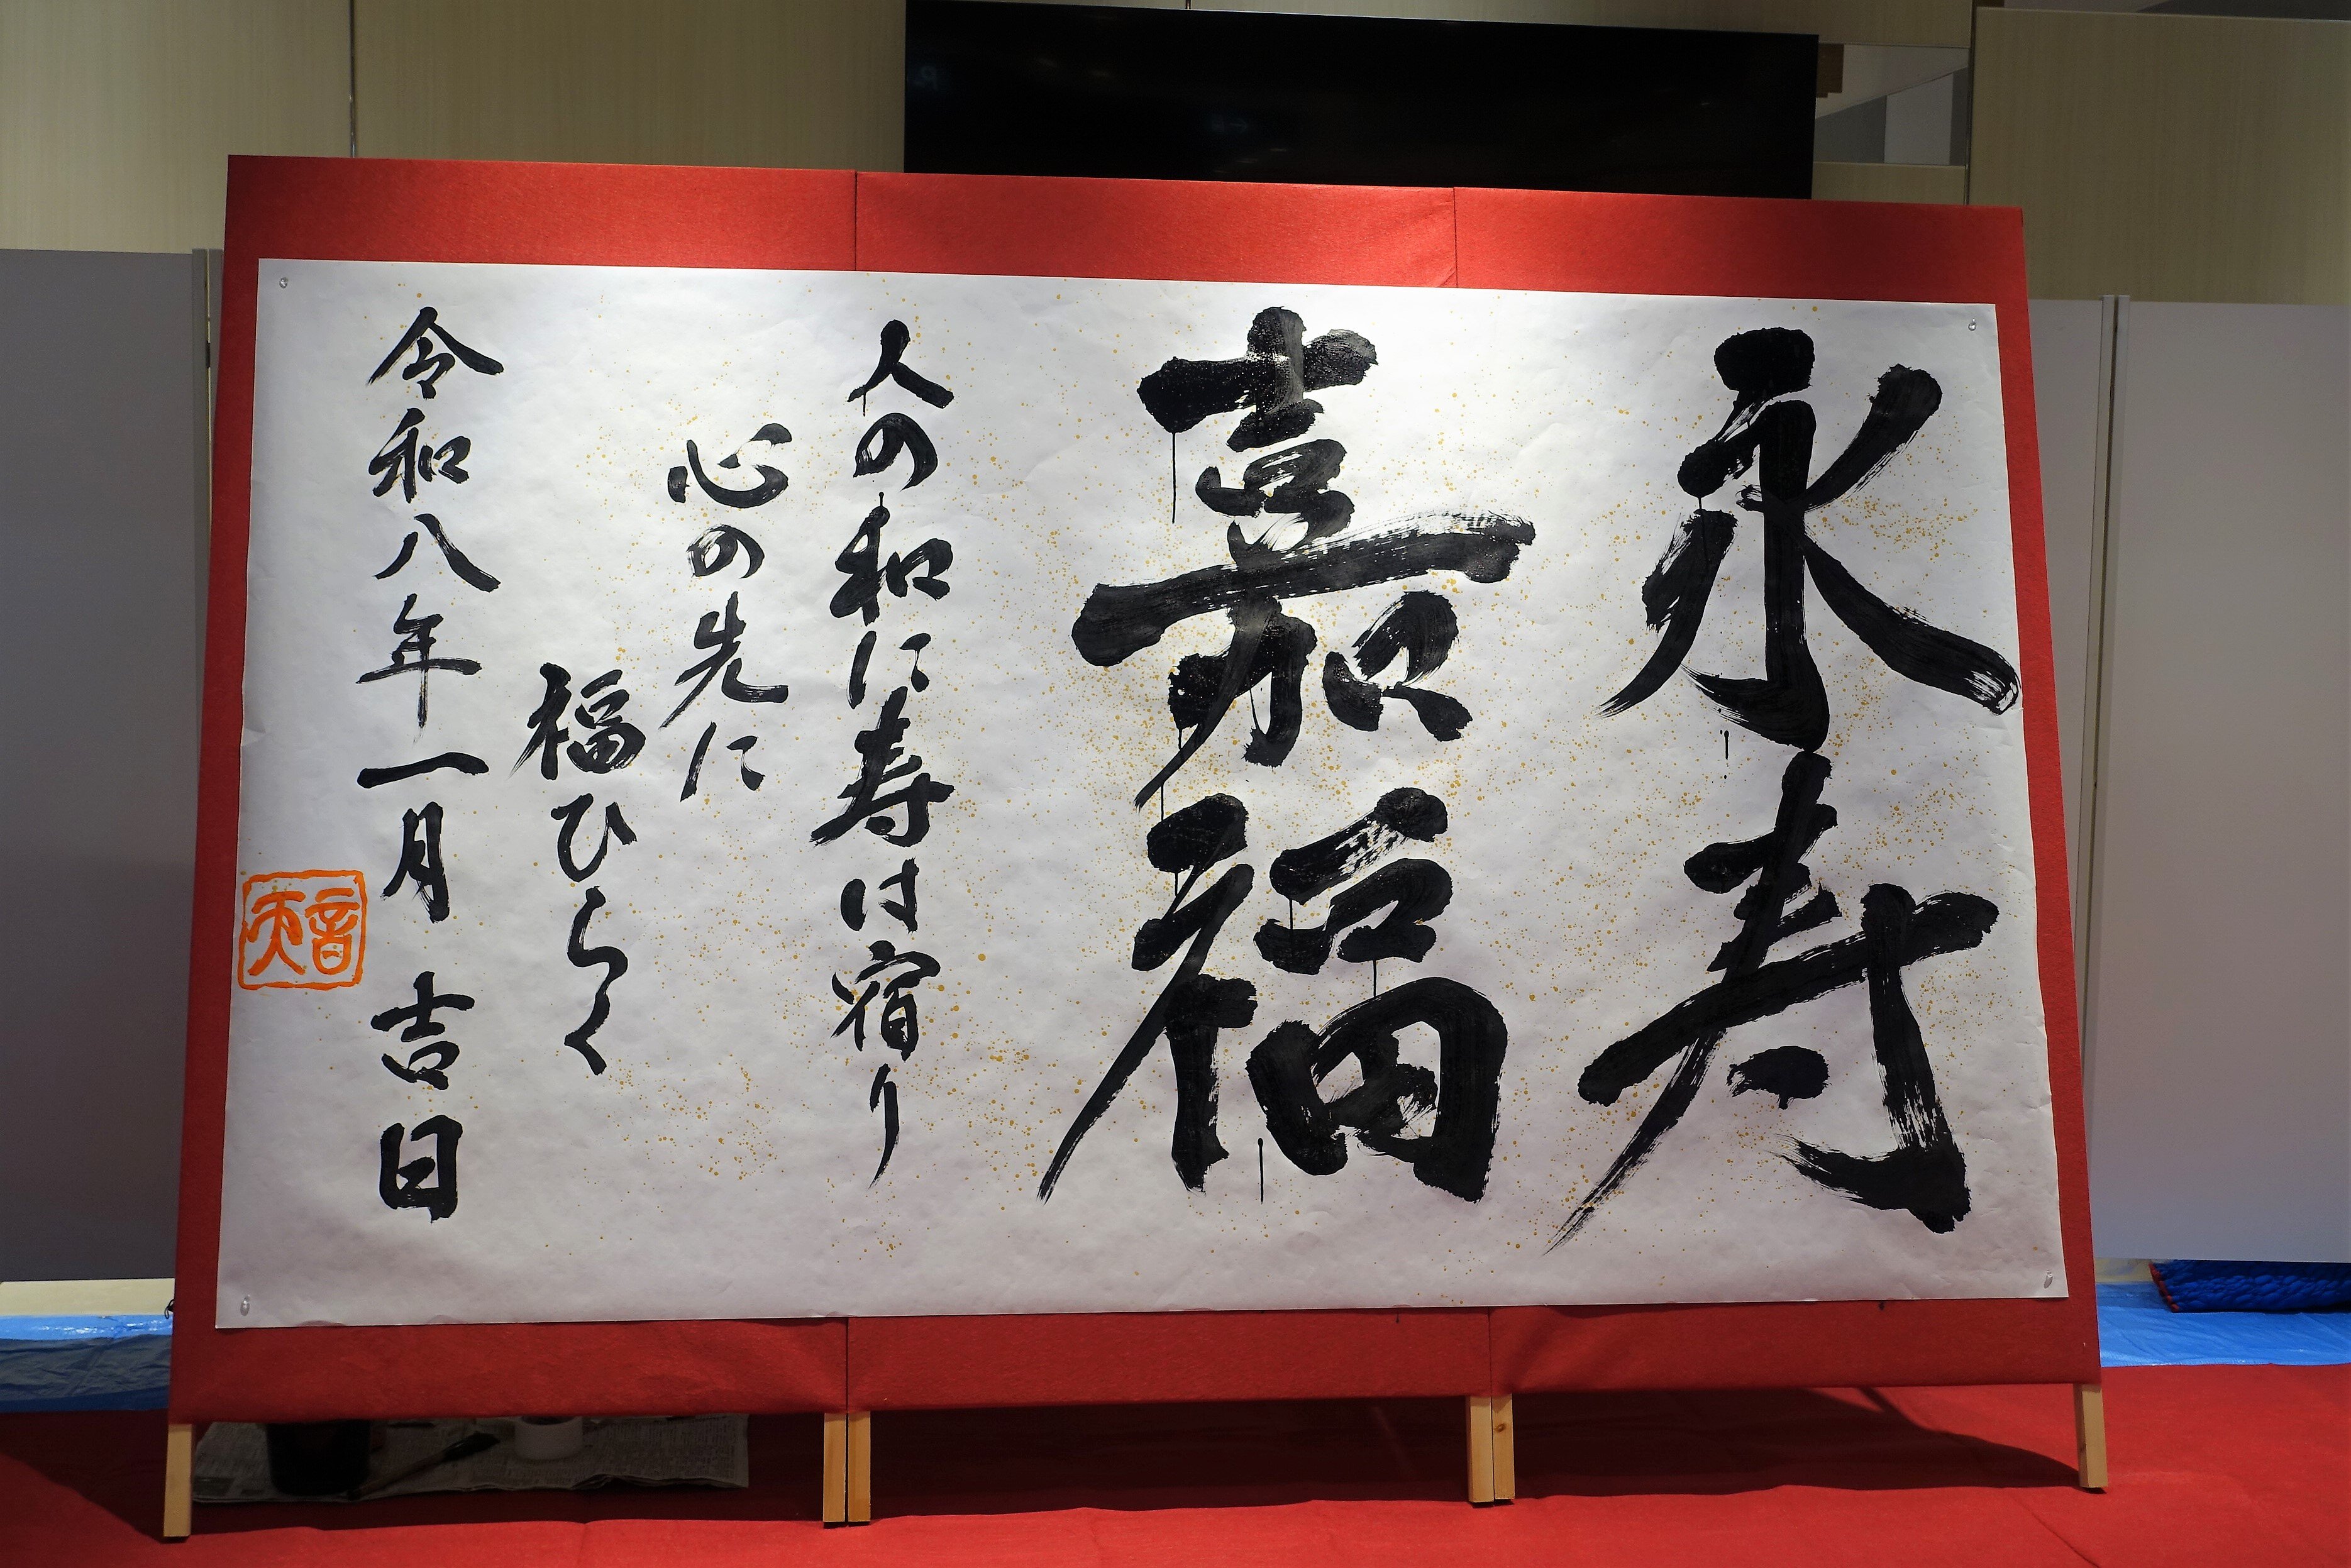 永寿
嘉福
人の和に寿は宿り
心の先に
福ひらく
令和八年一月 吉日